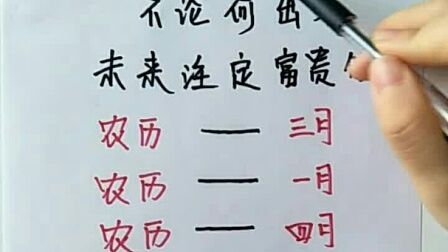 不论何出
未来注定富贵
农历 — 三月
农历 — 一月
农历 — 四月